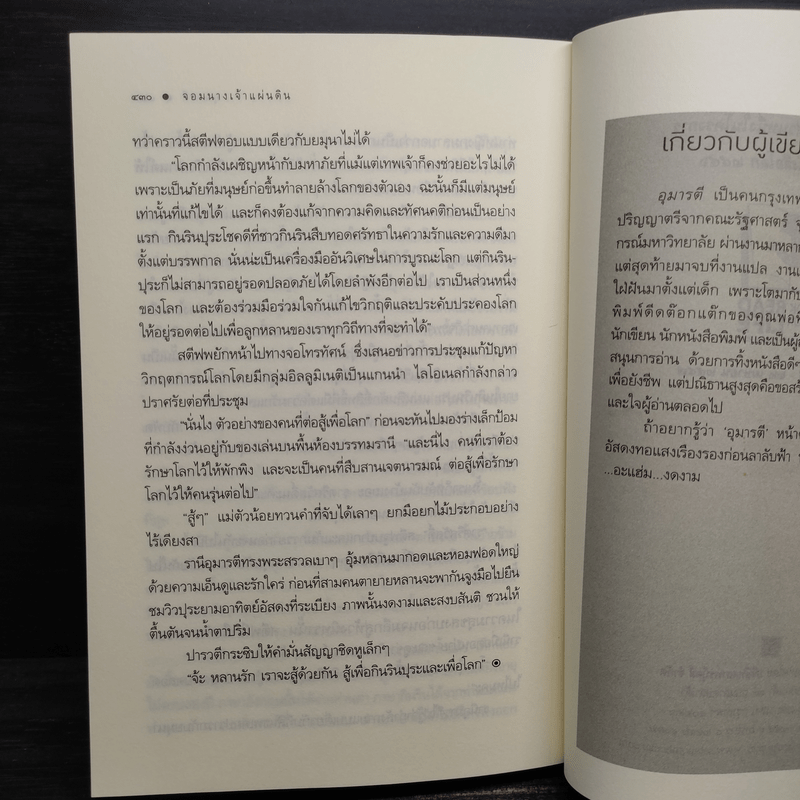 ๔๓๐ ● จอมนางเจ้าแผ่นดิน
ทว่าคราวนี้สตีฟตอบแบบเดียวกับยมุนาไม่ได้
“โลกกำลังเผชิญหน้ากับมหาภัยที่แม้แต่เทพเจ้าก็คงช่วยอะไรไม่ได้
เพราะเป็นภัยที่มนุษย์ก่อขึ้นทำลายล้างโลกของตัวเอง ฉะนั้นก็มีแต่มนุษย์
เท่านั้นที่แก้ไขได้ และก็คงต้องแก้จากความคิดและทัศนคติก่อนเป็นอย่าง
แรก กินรินปุระโชคดีที่ชาวกินรินสืบทอดศรัทธาในความรักและความดีมา
ตั้งแต่บรรพกาล นั่นน่ะเป็นเครื่องมืออันวิเศษในการบูรณะโลก แต่กินริน-
ปุระก็ไม่สามารถอยู่รอดปลอดภัยได้โดยลำพังอีกต่อไป เราเป็นส่วนหนึ่ง
ของโลก และต้องร่วมมือร่วมใจกันแก้ไขวิกฤติและประคับประคองโลก
ให้อยู่รอดต่อไปเพื่อลูกหลานของเราทุกวิถีทางที่จะทำได้”
สตีฟพยักหน้าไปทางจอโทรทัศน์ ซึ่งเสนอข่าวการประชุมแก้ปัญหา
วิกฤตการณ์โลกโดยมีกลุ่มอิลลูมิเนติเป็นแกนนำ ไลโอเนลกำลังกล่าว
ปราศรัยต่อที่ประชุม
“นั่นไง ตัวอย่างของคนที่ต่อสู้เพื่อโลก” ก่อนจะหันไปมองร่างเล็กป้อม
ที่กำลังง่วนอยู่กับของเล่นบนพื้นห้องบรรทมรานี “และนี่ไง คนที่เราต้อง
รักษาโลกไว้ให้พักพิง และจะเป็นคนที่สืบสานเจตนารมณ์ ต่อสู้เพื่อรักษา
โลกไว้ให้คนรุ่นต่อไป”
“สู้ๆ” แม่ตัวน้อยทวนคำที่จับได้เลาๆ ยกมือยกไม้ประกอบอย่าง
ไร้เดียงสา
รานีอุมารตีทรงพระสรวลเบาๆ อุ้มหลานมากอดและหอมฟอดใหญ่
ด้วยความเอ็นดูและรักใคร่ ก่อนที่สามคนตายายหลานจะพากันจูงมือไปยืน
ชมวิวปุระยามอาทิตย์อัสดงที่ระเบียง ภาพนั้นงดงามและสงบสันติ ชวนให้
ตื้นตันจนน้ำตาปริ่ม
ปารวตีกระซิบให้คำมั่นสัญญาชิดหูเล็กๆ
“จ้ะ หลานรัก เราจะสู้ด้วยกัน สู้เพื่อกินรินปุระและเพื่อโลก”
เกี่ยวกับผู้เขีย
อุมารตี เป็นคนกรุงเทพ
ปริญญาตรีจากคณะรัฐศาสตร์ จุ
กรณ์มหาวิทยาลัย ผ่านงานมาหลาก
แต่สุดท้ายมาจบที่งานแปล งานเ
ใฝ่ฝันมาตั้งแต่เด็ก เพราะโตมากับ
พิมพ์ดีดต๊อกแต๊กของคุณพ่อที่
นักเขียน นักหนังสือพิมพ์ และเป็นผู้ส
สนุนการอ่าน ด้วยการทิ้งหนังสือดีๆ
เพื่อยังชีพ แต่ปณิธานสูงสุดคือขอสร้
และใจผู้อ่านตลอดไป
ถ้าอยากรู้ว่า ‘อุมารตี’ หน้าต
อัสดงทอแสงเรืองรองก่อนลาลับฟ้า
...อะแฮ่ม...งดงาม